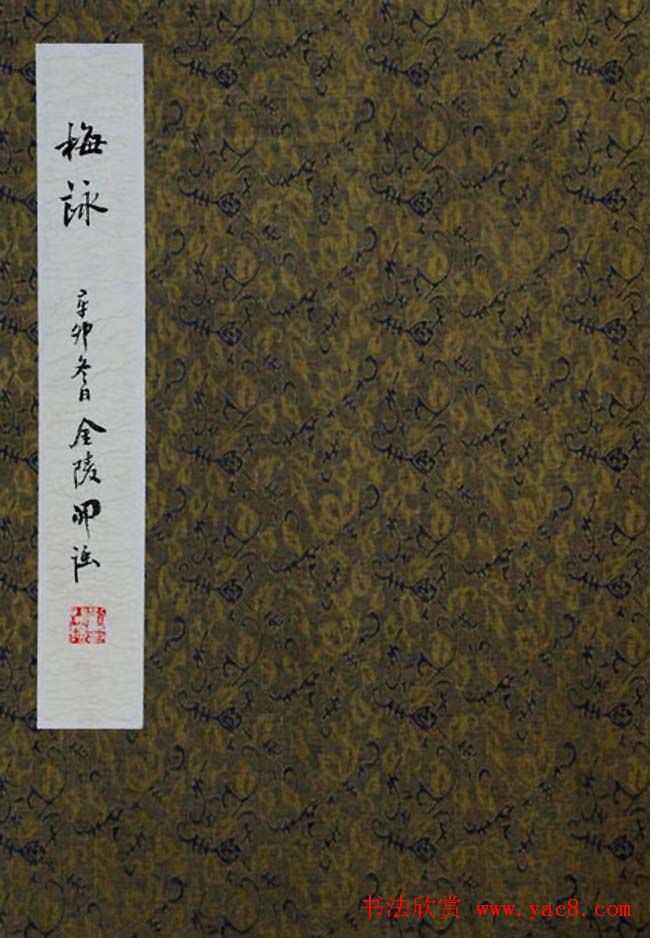 梅詠
辛卯冬日金陵
书法欣赏 www.yac8.com